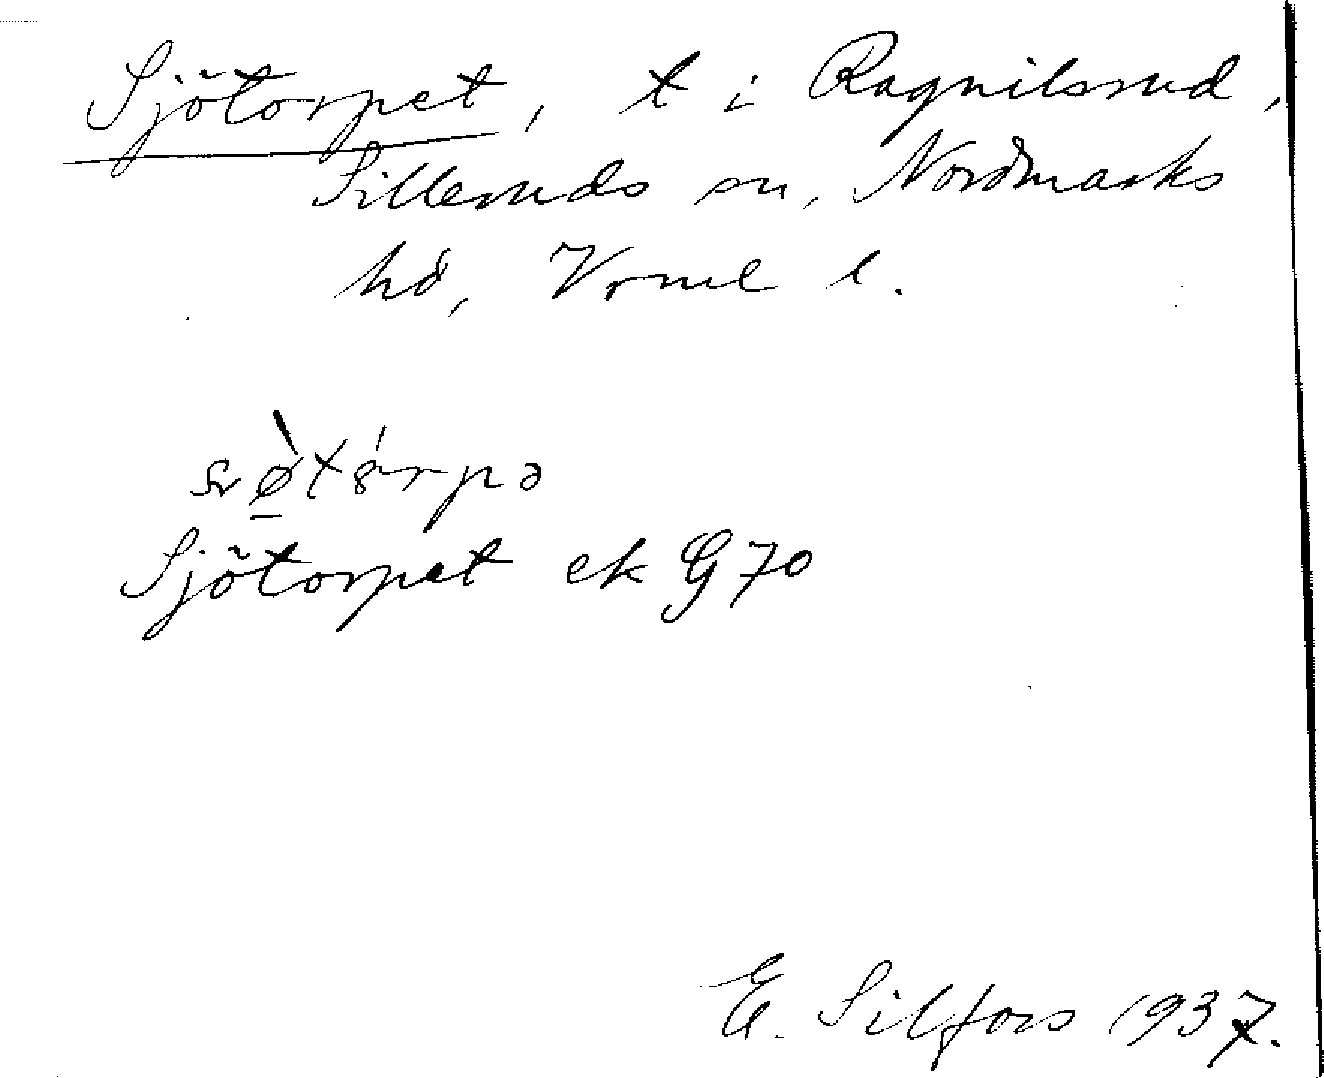 Sjötorpet, t i Ragnilsrud,
Silleruds sn, Nordmarks
hd, Vrml l.
Sjötorpet ek G 70
E. Silfors 1937.